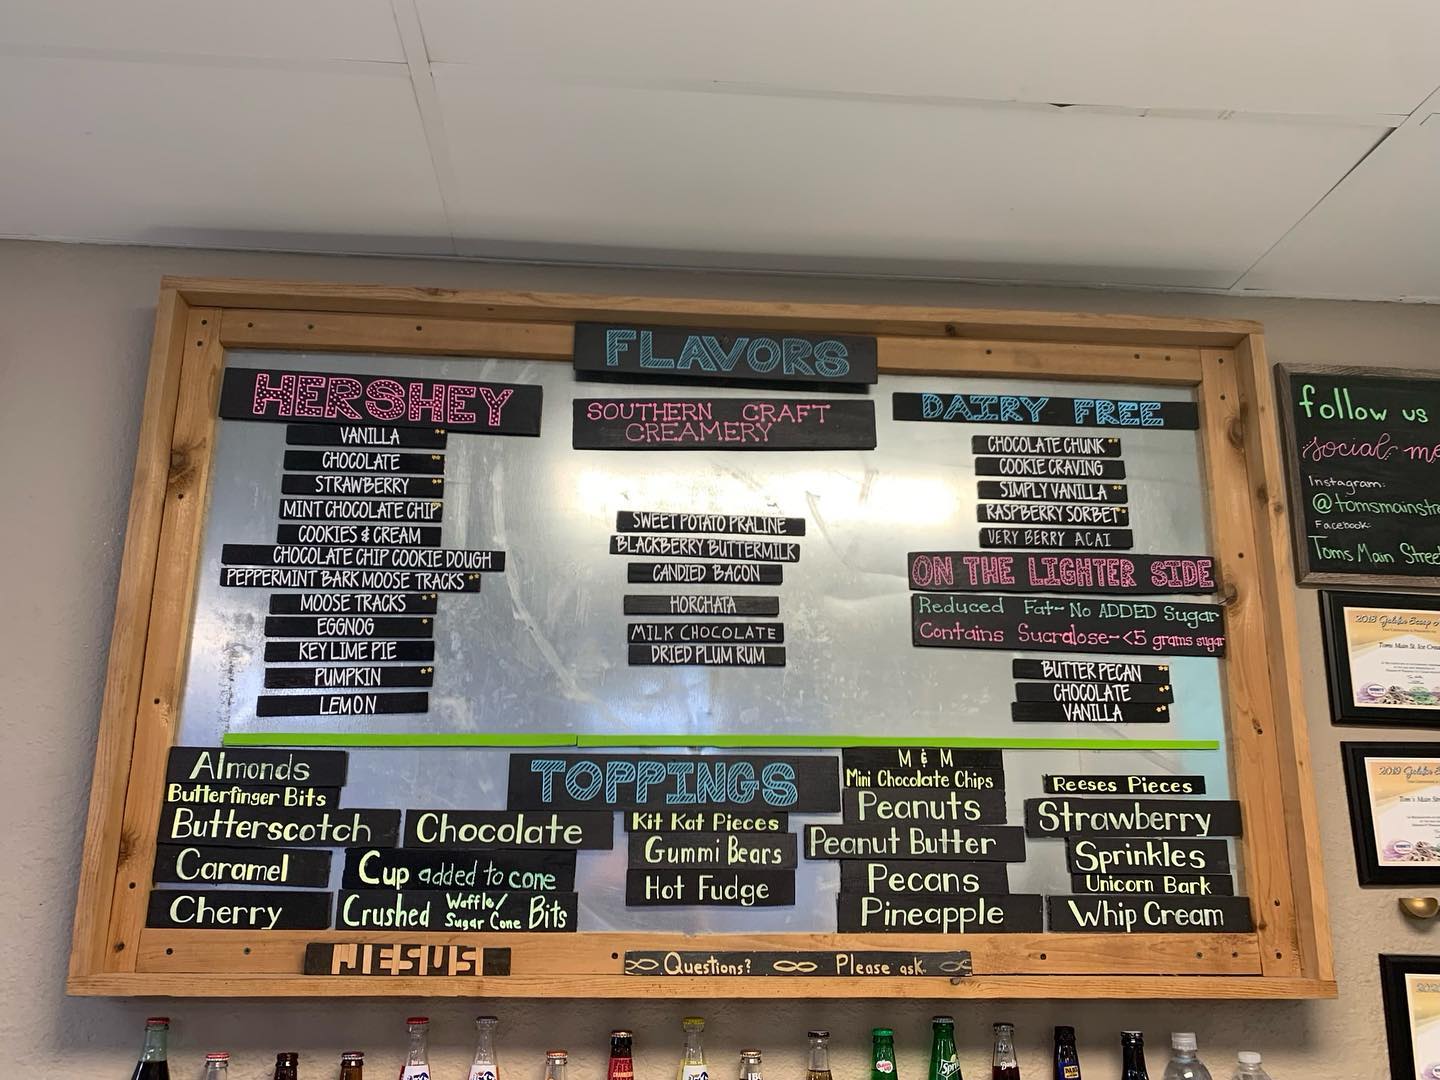 FLAVORS
HERSHEY
VANILLA **
CHOCOLATE **
STRAWBERRY **
MINT CHOCOLATE CHIP
COOKIES & CREAM
CHOCOLATE CHIP COOKIE DOUGH
PEPPERMINT BARK MOOSE TRACKS **
MOOSE TRACKS **
EGGNOG *
KEY LIME PIE
PUMPKIN **
LEMON
SOUTHERN CRAFT
CREAMERY
SWEET POTATO PRALINE
BLACKBERRY BUTTERMILK
CANDIED BACON
HORCHATA
MILK CHOCOLATE
DRIED PLUM RUM
DAIRY FREE
CHOCOLATE CHUNK **
COOKIE CRAVING
SIMPLY VANILLA **
RASPBERRY SORBET **
VERY BERRY ACAI
ON THE LIGHTER SIDE
Reduced Fat~No ADDED Sugar
Contains Sucralose~<5 grams sugar
BUTTER PECAN **
CHOCOLATE **
VANILLA **
TOPPINGS
Almonds
Butterfinger Bits
Butterscotch
Caramel
Cherry
Chocolate
Cup added to cone
Crushed Waffle/
Sugar Cone Bits
Kit Kat Pieces
Gummi Bears
Hot Fudge
M & M
Mini Chocolate Chips
Peanuts
Peanut Butter
Pecans
Pineapple
Reeses Pieces
Strawberry
Sprinkles
Unicorn Bark
Whip Cream
JESUS
Questions? Please ask.
follow us
social
Instagram:
@tomsmainstre
Facebook:
Toms Main Street
2019
Sprite